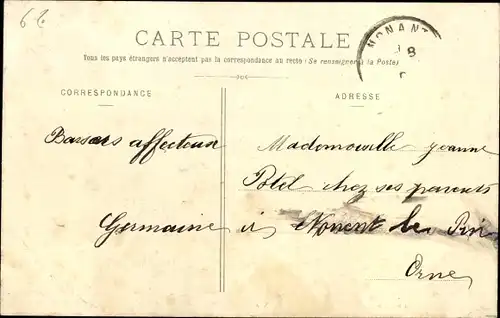 6 L
CARTE POSTALE
NONANT
18
Tous les pays étrangers n'acceptent pas la correspondance au recto (Se renseigner à la Poste)
CORRESPONDANCE
ADRESSE
Baisers affectueux
Germaine
Mademoiselle Yvonne
Potel chez ses parents
à Nonant le Pin
Orne